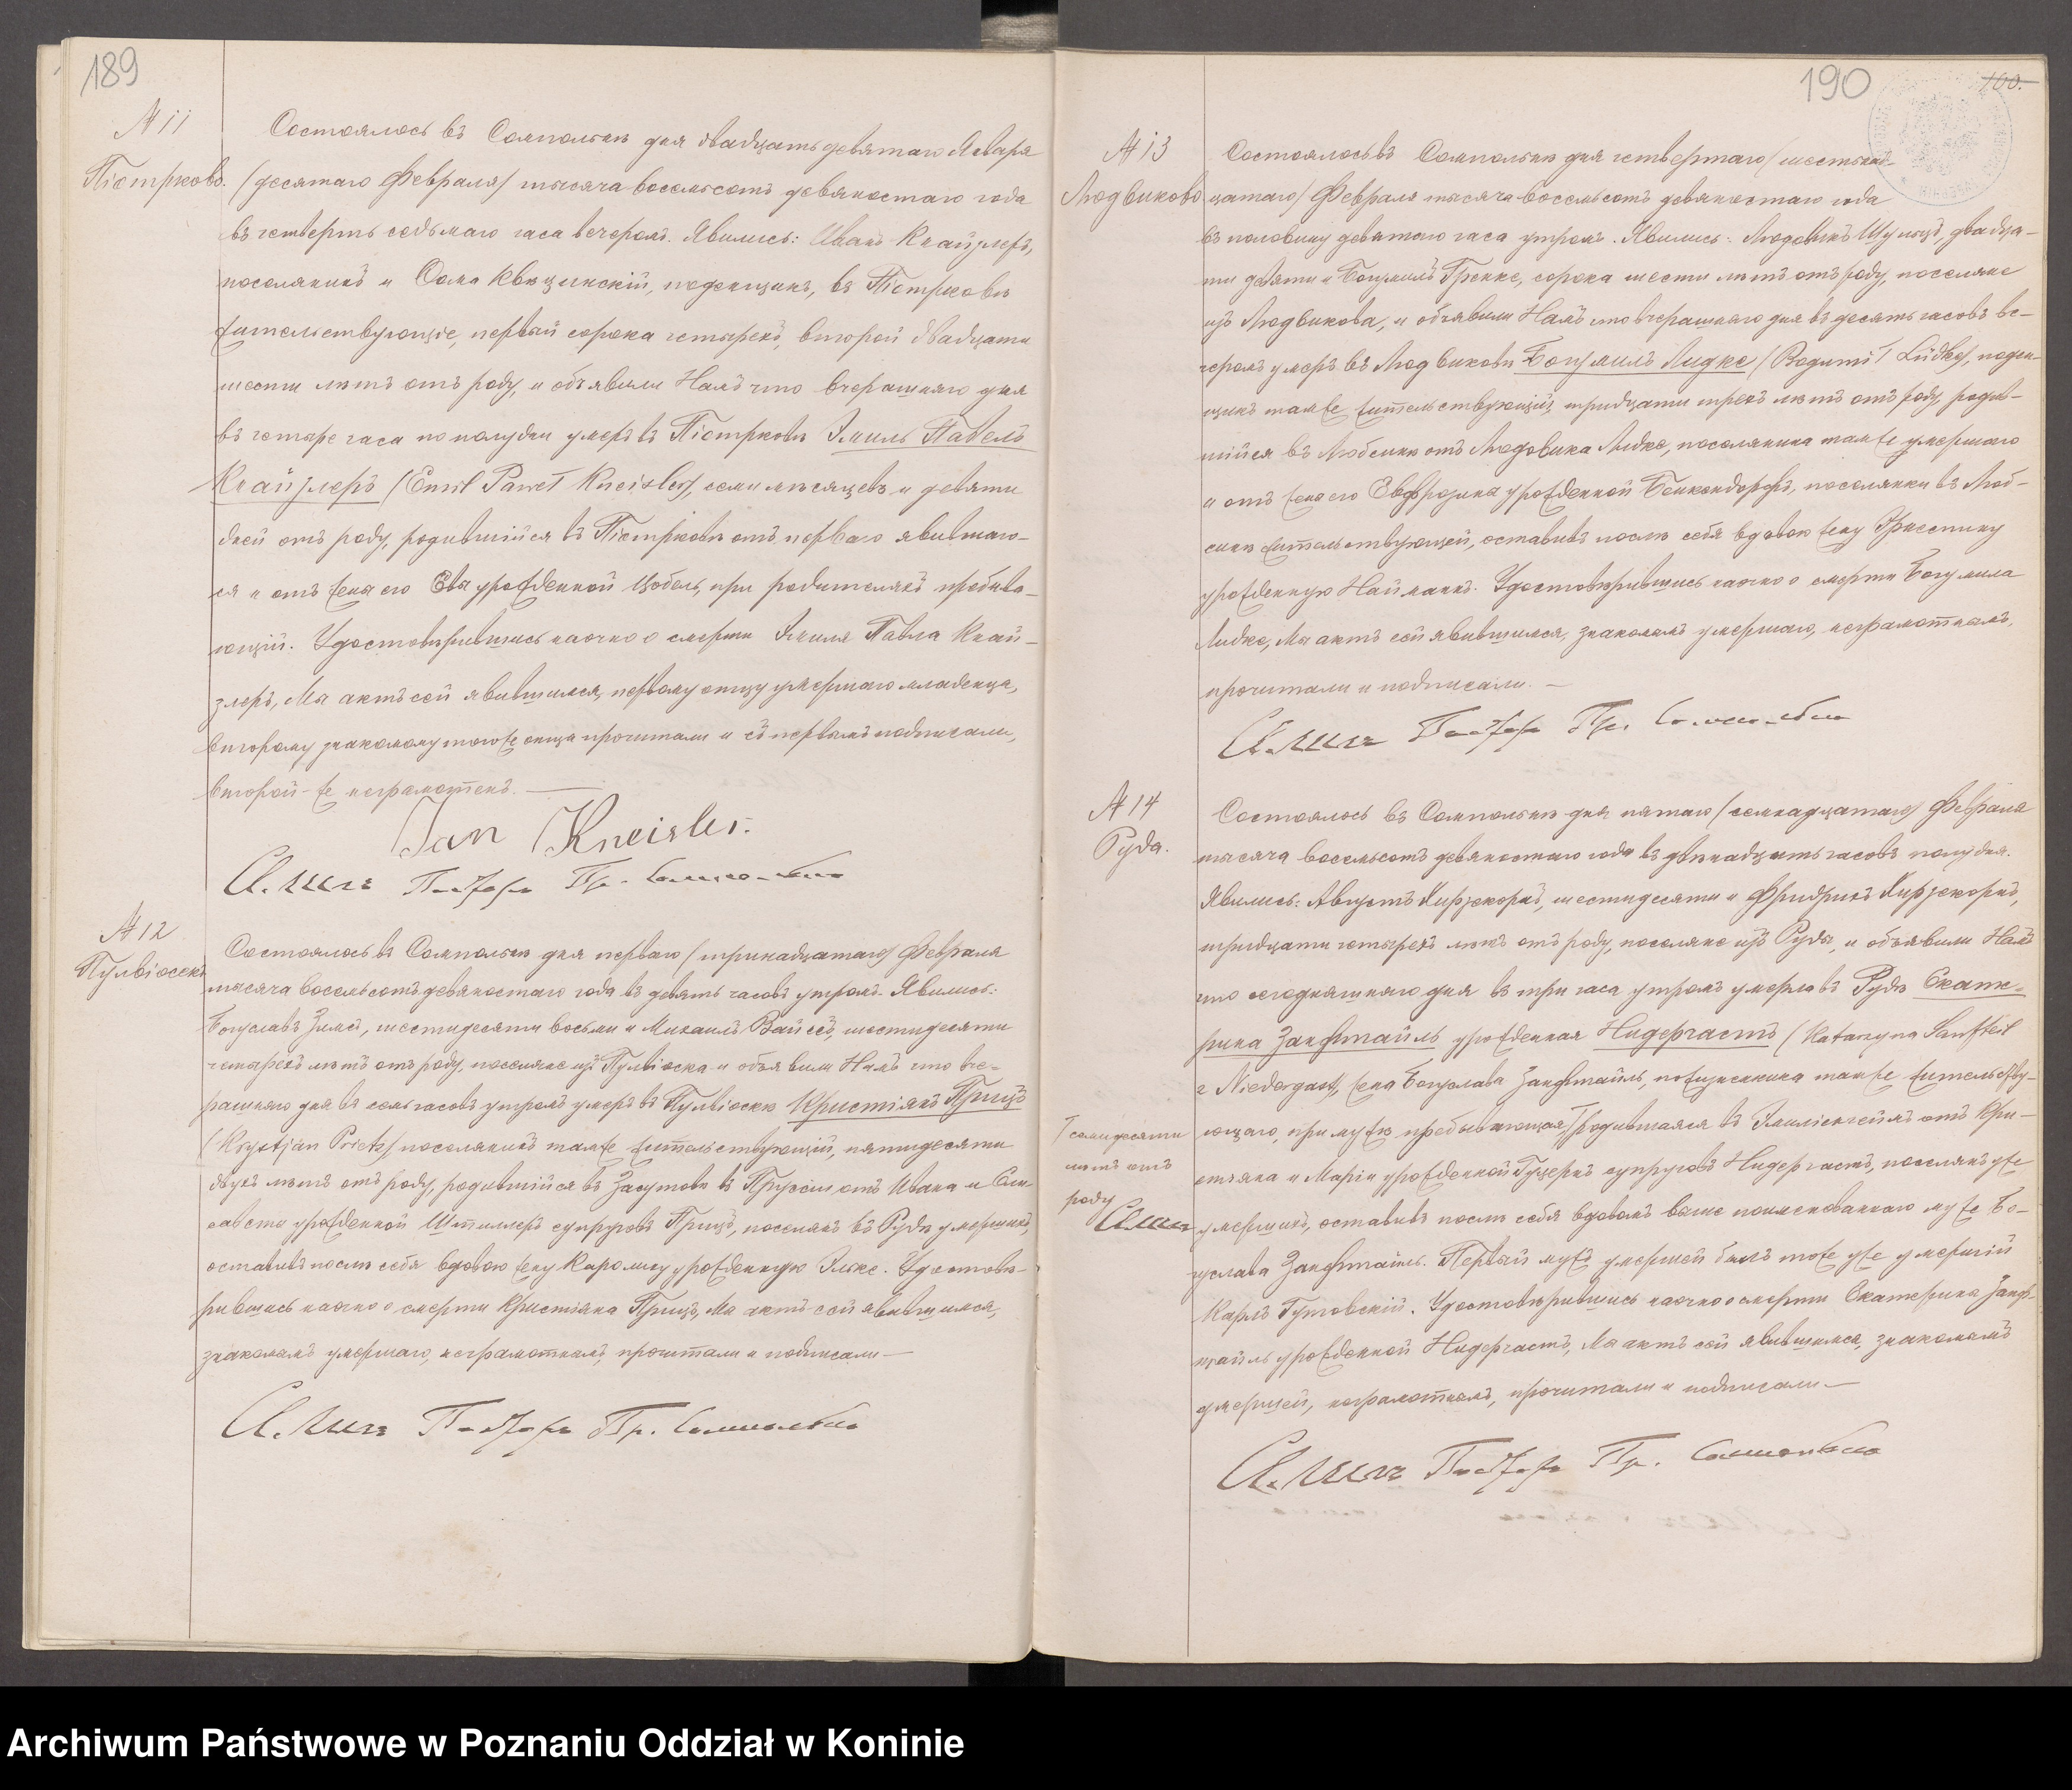 189
№ 11
Піотрково.
Состоялось въ Сомпольнѣ дня двадцать девятаго Января
/десятаго Февраля/ тысяча восемьсотъ девяностаго года
въ четверть седьмаго часа вечеромъ. Явились: Иванъ Кнайзлеръ,
поселянинъ и Ѳома поденщикъ, въ Піотрковѣ
жительствующіе, первый сорока четырехъ, второй двадцати
шести лѣтъ отъ роду, и объявили Намъ что вчерашняго дня
въ четыре часа по полудни умеръ въ Піотрковѣ Эмиль Павелъ
Кнайзлеръ /Emil Paweł Kneisler/, семи мѣсяцевъ и девяти
дней отъ роду, родившійся въ Піотрковѣ отъ перваго явившаго-
ся и отъ жены его Евы урожденной Цобель, при родителяхъ пребыва-
ющій. Удостовѣрившись наочно о смерти Эмиля Павла Кнай-
злеръ, Мы актъ сей явившимся, первому отцу умершаго младенца,
второму знакомому тогоже отца прочитали и съ первымъ подписали,
второй-же неграмотенъ. —
Jan Kneisler.
Пасторъ Пр. Сомпольно
№ 12
Пулвіосекъ
Состоялось въ Сомпольнѣ дня перваго /тринадцатаго/ Февраля
тысяча восемьсотъ девяностаго года въ девять часовъ утромъ. Явились:
Богуславъ шестидесяти восьми и Михаилъ Вайсъ, шестидесяти
четырехъ лѣтъ отъ роду, поселяне изъ Пулвіоска и объявили Намъ что вче-
рашняго дня въ семь часовъ утромъ умеръ въ Пулвіоскѣ Христіанъ Прицъ
/Krystjan Prietz/ поселянинъ тамже жительствующій, пятидесяти
двухъ лѣтъ отъ роду, родившійся въ Засутовѣ въ Пруссіи отъ Ивана и Ели-
саветы урожденной Штиллеръ супруговъ Прицъ, поселянъ въ Рудѣ умершихъ,
оставивъ послѣ себя вдовою жену Каролину урожденную Эльке. Удостовѣ-
рившись наочно о смерти Христіана Прицъ, Мы актъ сей явившимся,
знакомымъ умершаго, неграмотнымъ, прочитали и подписали —
Пасторъ Пр. Сомпольно
190
100.
№ 13
Людвиково
Состоялось въ Сомпольнѣ дня четвертаго /шестнад-
цатаго/ Февраля тысяча восемьсотъ девяностаго года
въ половину девятаго часа утромъ. Явились: Людвикъ Шульцъ, двадца-
ти девяти и Богумилъ Гренке, сорока шести лѣтъ отъ роду, поселяне
изъ Людвикова, и объявили Намъ что вчерашняго дня въ десять часовъ ве-
черомъ умеръ въ Людвиковѣ Богумилъ Лидке /Bogumił Lüdke/, поден-
щикъ тамже жительствующій, тридцати трехъ лѣтъ отъ роду, родив-
шійся въ Любсинѣ отъ Людовика Лидке, поселянина тамже умершаго
и отъ жены его Евфрозины урожденной Бенкендорфъ, поселянки въ Люб-
синѣ жительствующей, оставивъ послѣ себя вдовою жену Эрнестину
урожденную Найманнъ. Удостовѣрившись наочно о смерти Богумила
Лидке, Мы актъ сей явившимся, знакомымъ умершаго, неграмотнымъ,
прочитали и подписали. —
Пасторъ Пр. Сомпольно
№ 14
Руда.
Состоялось въ Сомпольнѣ дня пятаго /семнадцатаго/ Февраля
тысяча восемьсотъ девяностаго года въ двѣнадцать часовъ полудня.
Явились: Августъ Хиршекорнъ, шестидесяти и Фридрихъ Хиршекорнъ,
тридцати четырехъ лѣтъ отъ роду, поселяне изъ Руды, и объявили Намъ
что сегодняшняго дня въ три часа утромъ умерла въ Рудѣ Екате-
рина Занфтайль урожденная Нидергастъ /Katarzyna Sanfteil
z Niedergast/, жена Богуслава Занфтайль, пожизненника тамже жительству-
ющаго, при мужѣ пребывающая, родившаяся въ Эмиліенгеймъ отъ Хри-
стіана и Маріи урожденной супруговъ Нидергастъ, поселянъ уже
умершихъ, оставивъ послѣ себя вдовымъ выше поименованнаго мужа Бо-
гуслава Занфтайль. Первый мужъ умершей былъ тоже уже умершій
Карлъ Гутовскій. Удостовѣрившись наочно о смерти Екатерины Занф-
тайль урожденной Нидергастъ, Мы актъ сей явившимся, знакомымъ
умершей, неграмотнымъ, прочитали и подписали —
семидесяти
лѣтъ отъ
роду
Пасторъ Пр. Сомпольно
Archiwum Państwowe w Poznaniu Oddział w Koninie